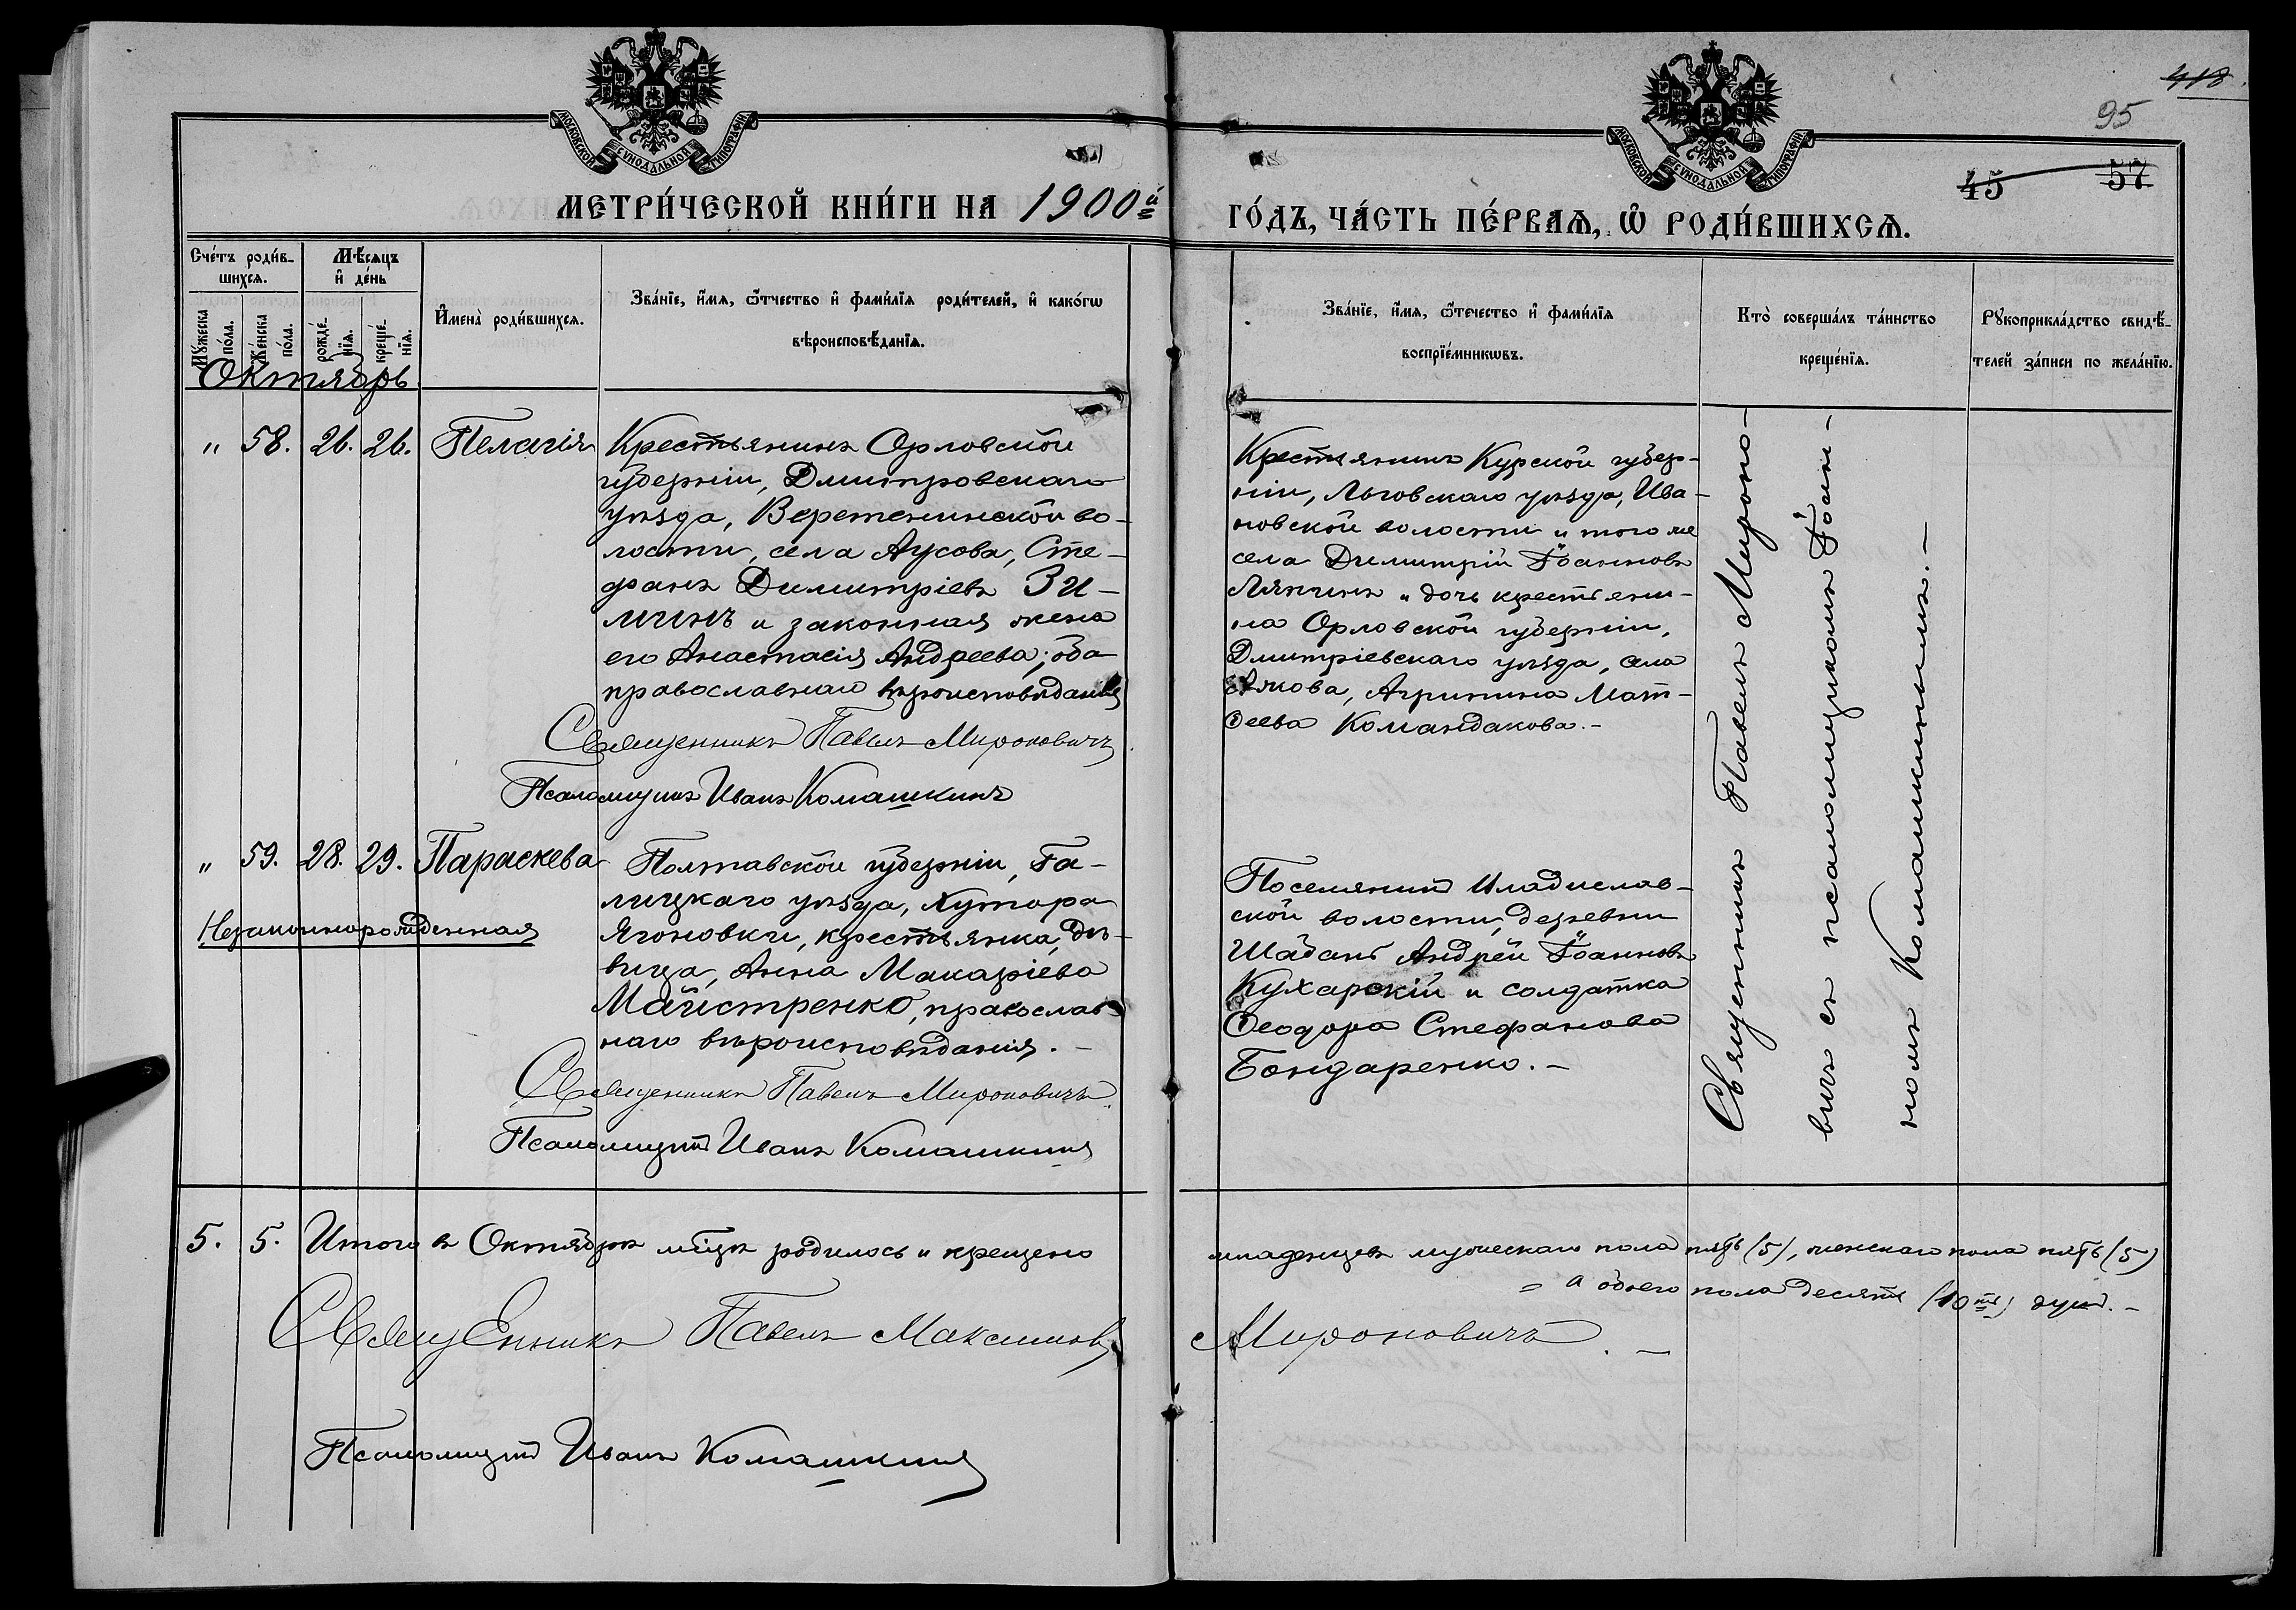 418
95
45 57
МОСКОВСКОЙ СѴНОДАЛЬНОЙ ТИПОГРАФІИ
МОСКОВСКОЙ СѴНОДАЛЬНОЙ ТИПОГРАФІИ
МЕТРИ́ЧЕСКОЙ КНИ́ГИ НА 1900й
ГО́ДЪ, ЧА́СТЬ ПЕ́РВАѦ, Ѡ РОДИ́ВШИХСѦ.
Сче́тъ роди́в-
шихсѧ.
Мꙋ́жеска по́ла.
Же́нска по́ла.
Мѣ́сѧцъ
и҆ де́нь
рожде́-нїѧ.
креще́-нїѧ.
И҆мена̀ роди́вшихсѧ.
Зва́нїе, и҆́мѧ, ѻ҆́тчество и҆ фами́лїѧ роди́телей, и҆ како́гѡ
вѣроисповѣ́данїѧ.
Зва́нїе, и҆́мѧ, ѻ҆́течество и҆ фами́лїѧ
воспрїе́мникѡвъ.
Кто̀ соверша́лъ та́инство
креще́нїѧ.
Рꙋкоприкла́дство свидѣ́-
телей за́писи по жела́нїю.
Октябрь
" 58. 26. 26. Пелагія
Крестьянинъ Орловской
губерніи, Дмитровскаго
уѣзда, Веретенинской во-
лости, села Аусова, Сте-
фанъ Димитріевъ Зи-
минъ и законная жена
его Анастасія Андреева; оба
православнаго вѣроисповѣданія
Священникъ Павелъ Мироновичъ
Псаломщикъ Иванъ Комашкинъ
Крестьянинъ Курской губер-
ніи, Льговскаго уѣзда, Ива-
новской волости и того же
села Димитрій Іоанновъ
Ляпинъ и дочь крестьяни-
на Орловской губерніи,
Дмитріевскаго уѣзда, села
Агрипина Мат-
ѳеева Командакова.-
Священникъ Павелъ Мироно-
вичъ съ псаломщикомъ Іоан-
номъ Комашкинымъ.-
" 59. 28. 29. Параскева
Незаконнорожденная
Полтавской губерніи, Га-
лицкаго уѣзда, хутора
Ягоновки, крестьянка, дѣ-
вица, Анна Макаріева
Майстренко, православ-
наго вѣроисповѣданія.-
Священникъ Павелъ Мироновичъ
Псаломщикъ Иванъ Комашкинъ
Поселянинъ Владислав-
ской волости, деревни
Шабанъ Андрей Іоанновъ
Кухарскій и солдатка
Ѳеодора Стефанова
Бондаренко.-
5. 5. Итого въ Октябрѣ мѣцѣ родилось и крещено
младенцевъ мужескаго пола пять (5), женскаго пола пять (5)
= а обоего пола десять (10ть) душъ.-
Священникъ Павелъ Максимовъ
Мироновичъ.-
Псаломщикъ Иванъ Комашкинъ